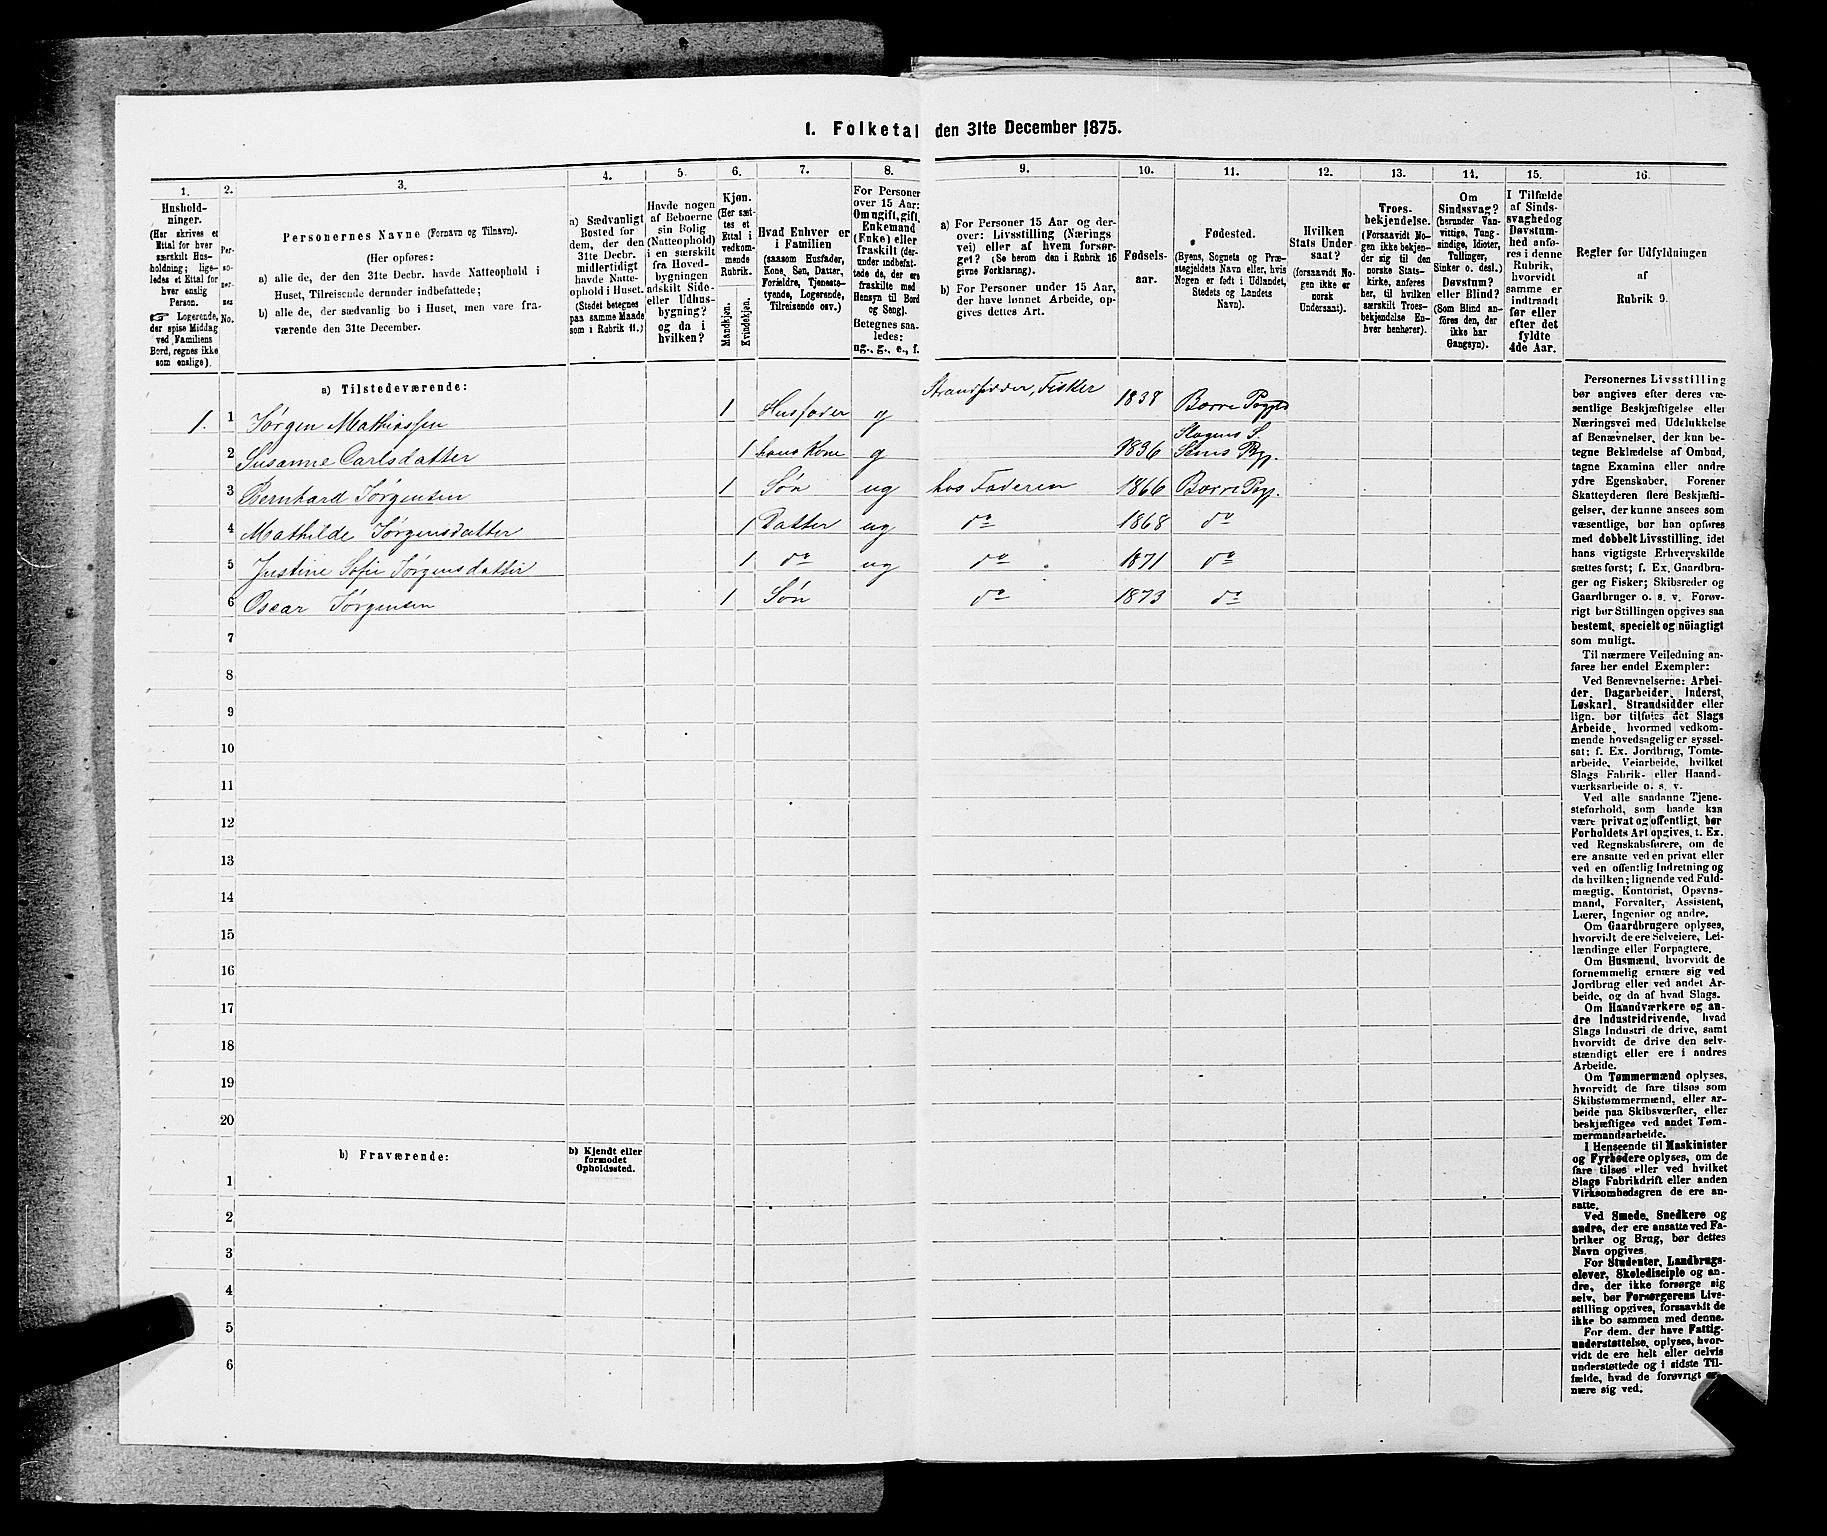 1. Folketal den 31te December 1875.
1.
2.
3.
4.
5.
6.
7.
8.
9.
10.
11.
12.
13.
14.
15.
16.
Hushold-
ninger.
(Her skrives et
Ettal for hver
særskilt Hus-
holdning; lige-
ledes et Ettal for
hver enslig
Person.
☞ Logerende,
der spise Middag
ved Familiens
Bord, regnes ikke
som enslige).
Per-
so-
ner-
nes
No.
Personernes Navne (Fornavn og Tilnavn).
(Her opføres:
a) alle de, der den 31te Decbr. havde Natteophold i
Huset, Tilreisende derunder indbefattede;
b) alle de, der sædvanlig bo i Huset, men vare fra-
værende den 31te December.
a) Sædvanligt
Bosted for
dem, der den
31te Decbr.
midlertidigt
havde Natte-
ophold i Huset.
(Stedet betegnes
paa samme Maade
som i Rubrik 11.)
Havde nogen
af Beboerne
sin Bolig
(Natteophold)
i en særskilt
fra Hoved-
bygningen
adskilt Side-
eller Udhus-
bygning?
og da i
hvilken?
Kjøn.
(Her sæt-
tes et
Ettal i
vedkom-
mende
Rubrik.
Mandkjøn.
Kvindekjøn.
Hvad Enhver er
i Familien
(saasom Husfader,
Kone, Søn, Datter,
Forældre, Tjeneste-
tyende, Logerende,
Tilreisende osv.)
For Personer
over 15 Aar:
Om ugift, gift,
Enkemand
(Enke) eller
fraskilt (der-
under indbefat-
tede de, der ere
fraskilte med
Hensyn til Bord
og Seng).
Betegnes saa-
ledes:
ug., g., e., f.
a) For Personer 15 Aar og der-
over: Livsstilling (Nærings
vei) eller af hvem forsør-
get? (Se herom den i Rubrik 16
givne Forklaring).
b) For Personer under 15 Aar,
der have lønnet Arbeide, op-
gives dettes Art.
Fødsels-
aar.
Fødested.
(Byens, Sognets og Præ-
stegjeldets Navn eller, hvis
Nogen er født i Udlandet,
Stedets og Landets
Navn).
Hvilken
Stats Under-
saat?
(forsaavidt No-
gen ikke er
norsk
Undersaat).
Troes-
bekjendelse.
(Forsaavidt No-
gen ikke bekjen-
der sig til den
norske Stats-
kirke, anføres
her, til hvilken
særskilt Troes-
bekjendelse En-
hver henhører).
Om
Sindssvag?
(herunder Van-
vittige, Tung-
sindige, Idioter,
Tullinger,
Sinker o. desl.)
Døvstum?
eller Blind?
(Som Blind an-
føres den, der
ikke har
Gangsyn).
I Tilfælde
af Sinds-
svaghed og
Døvstum-
hed anfø-
res i denne
Rubrik,
hvorvidt
samme er
indtraadt
før eller
efter det
fyldte
4de Aar.
Regler for Udfyldningen
af
Rubrik 9.
a) Tilstedeværende:
1. 1 Jørgen Mathiassen 1 Husfader g Strandsidder, Fisker 1838 Borre Pgjeld
2 Susanne Carlsdatter 1 hans Kone g 1836 Slagens S. Sems Pgj.
3 Bernhard Jørgensen 1 Søn ug hos Faderen 1866 Borre Pgj.
4 Mathilde Jørgensdatter 1 Datter ug do 1868 do
5 Justine Sofie Jørgensdatter 1 do ug do 1871 do
6 Oscar Jørgensen 1 Søn do 1873 do
7
8
9
10
11
12
13
14
15
16
17
18
19
20
b) Fraværende:
b) Kjendt eller
formodet
Opholdssted.
1
2
3
4
5
6
Personernes Livsstilling
bør angives efter deres væ-
sentlige Beskjæftigelse eller
Næringsvei med Udelukkelse
af Benævnelser, der kun be-
tegne Beklædelse af Ombud,
tagne Examina eller andre
ydre Egenskaber. Forener
Skatteyderen flere Beskjæfti-
gelser, der kunne ansees som
væsentlige, bør han opføres
med dobbelt Livsstilling, idet
hans vigtigste Erhvervskilde
sættes først; f. Ex. Gaardbru-
ger og Fisker; Skibsreder og
Gaardbruger o. s. v. Forøv-
rigt bør Stillingen opgives saa
bestemt, specielt og nöiagtigt
som muligt.
Til nærmere Veiledning an-
føres her endel Exempler:
Ved Benævnelserne: Arbei-
der, Dagarbeider, Inderst,
Løskarl, Strandsidder eller
lign. bør tilføies det Slags
Arbeide, hvormed vedkom-
mende hovedsagelig er syssel-
sat; f. Ex. Jordbrug, Tomte-
arbeide, Veiarbeide, hvilket
Slags Fabrik- eller Haand-
værksarbeide o. s. v.
Ved alle saadanne Tjene-
steforhold, som baade kan
være privat og offentligt, bør
Forholdets Art opgives, t. Ex.
ved Regnskabsførere, om de
ere ansatte ved en privat eller
ved en offentlig Indretning og
da hvilken; lignende ved Fuld-
mægtig, Kontorist, Opsyns-
mand, Forvalter, Assistent,
Lærer, Ingeniør og andre.
Om Gaardbrugere oplyses,
hvorvidt de ere Selveiere, Lei-
lændinge eller Forpagtere.
Om Husmænd, hvorvidt de
fornemmelig ernære sig ved
Jordbrug eller ved andet Ar-
beide, og da af hvad Slags.
Om Haandværkere og an-
dre Industridrivende, hvad
Slags Industri de drive, samt
hvorvidt de drive den selv-
stændigt eller ere i andres
Arbeide.
Om Tømmermænd oplyses,
hvorvidt de fare tilsøs som
Skibstømmermænd, eller ar-
beide paa Skibsværfter, eller
beskjæftiges ved andet Tøm-
mermandsarbeide.
I Henseende til Maskinister
og Fyrbødere oplyses, om de
fare tilsøs eller ved hvilket
Slags Fabrikdrift eller anden
Virksomhedsgren de ere an-
satte.
Ved Smede, Snedkere og
andre, der ere ansatte ved Fa-
briker og Brug, bør dettes
Navn opgives.
For Studenter, Landbrugs-
elever, Skoledisciple og an-
dre, der ikke forsørge sig
selv, bør Forsørgerens Livs-
stilling opgives, forsaavidt de
ikke bo sammen med denne.
For dem, der have Fattig-
understøttelse, oplyses, hvor-
vidt de ere helt eller delvis
understøttede og i sidste Til-
fælde, hvad de forøvrigt er-
nære sig ved.